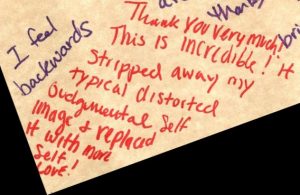 I feel
backwards
thanks
Thank you very much,
This is incredible! It
stripped away my
typical distorted
Judgmental self
image & replaced
it with more
self
LOVE!